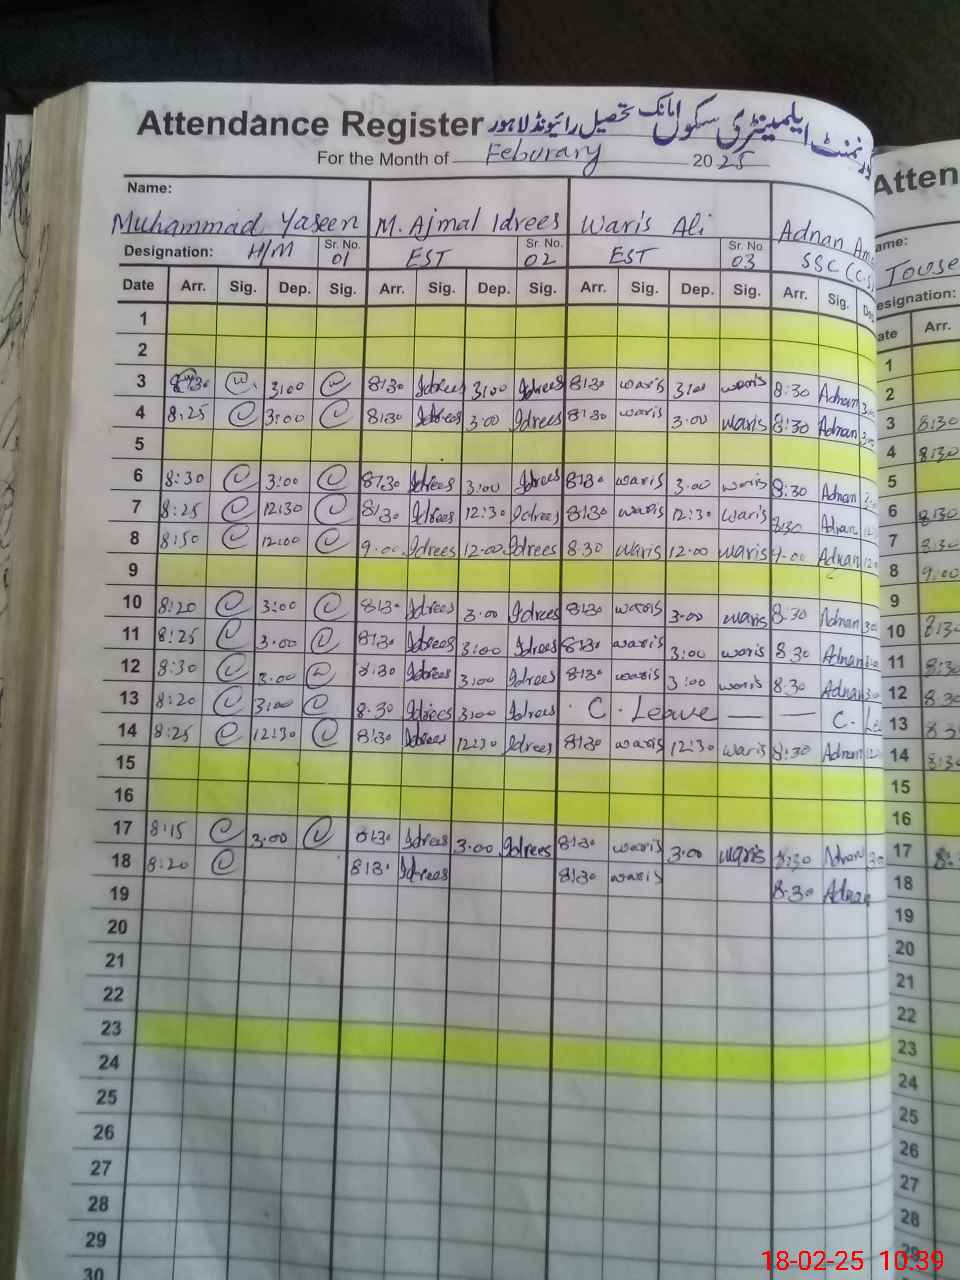 Attendance Register گورنمنٹ ایلیمینٹری سکول مانک تحصیل رائیونڈ لاہور
For the Month of Feburary 2025
Name:
Muhammad Yaseen M. Ajmal Idrees Waris Ali Adnan
Designation: H/M Sr. No. 01 EST Sr. No. 02 EST Sr. No. 03 SSC (C.S)
Date Arr. Sig. Dep. Sig. Arr. Sig. Dep. Sig. Arr. Sig. Dep. Sig. Arr. Sig.
1
2
3 3:00 8:30 Idrees 3:00 Idrees 8:30 waris 3:00 waris 8:30 Adnan
4 8:25 3:00 8:30 Idrees 3:00 Idrees 8:30 waris 3.00 waris 8:30 Adnan
5
6 8:30 3:00 8:30 Idrees 3:00 Idrees 8:30 waris 3.00 waris 8:30 Adnan
7 8:25 12:30 8:30 Idrees 12:30 Idrees 8:30 waris 12:30 waris 8:30 Adnan
8 8:50 12:00 9.00 Idrees 12.00 Idrees 8.30 waris 12.00 waris 9.00 Adnan
9
10 8:20 3:00 8:30 Idrees 3.00 Idrees 8:30 waris 3.00 waris 8:30 Adnan
11 8:25 3.00 8:30 Idrees 3:00 Idrees 8:30 waris 3:00 waris 8.30 Adnan
12 8:30 3.00 8:30 Idrees 3:00 Idrees 8:30 waris 3:00 waris 8.30 Adnan
13 8:20 3:00 8.30 Idrees 3:00 Idrees C. Leave — — C.
14 8:25 12:30 8:30 Idrees 12:30 Idrees 8:30 waris 12:30 waris 8:30 Adnan
15
16
17 8:15 3.00 8:30 Idrees 3.00 Idrees 8:30 waris 3.00 waris 8:30 Adnan
18 8:20 8:30 Idrees 8:30 waris 8.30 Adnan
19
20
21
22
23
24
25
26
27
28
29
30
Atten
ame:
Towse
esignation:
ate Arr.
1
2
3 8:30
4 8:30
5
6 8:30
7 8:30
8 9:00
9
10 8:30
11 8:30
12 8.30
13
14
15
16
17
18
19
20
21
22
23
24
25
26
27
28
29
18-02-25 10:39